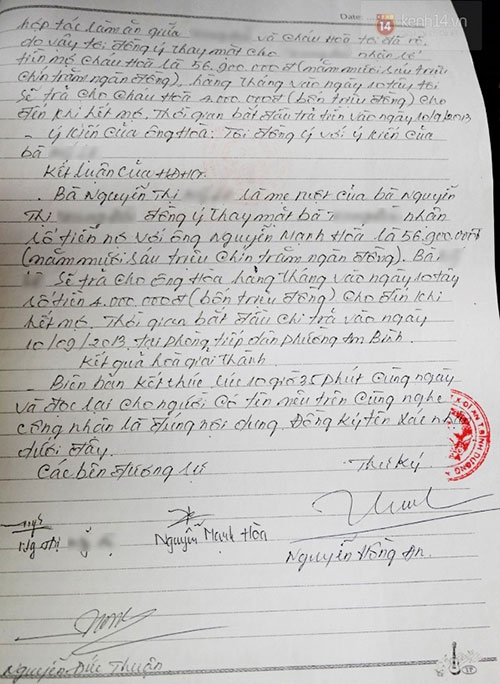 Date
kenh14.vn
hợp tác làm ăn giữa và cháu Hoà tôi đã rõ,
do vậy tôi đồng ý thay mặt cho nhận số
tiền nợ cháu Hoà là 56.900.000đ (năm mươi sáu triệu
chín trăm ngàn đồng), hàng tháng vào ngày 10 tây tôi
sẽ trả cho cháu Hoà 4.000.000đ (bốn triệu đồng) cho
đến khi hết nợ. Thời gian bắt đầu trả tiền vào ngày 10/9/2013
- Ý kiến của ông Hoà: Tôi đồng ý với ý kiến của
bà
Kết luận của HĐHG.
. Bà Nguyễn Thị là mẹ ruột của bà Nguyễn
Thị đồng ý thay mặt bà nhận
số tiền nợ với ông Nguyễn Mạnh Hoà là 56.900.000đ
(năm mươi sáu triệu chín trăm ngàn đồng). Bà
sẽ trả cho ông Hoà hàng tháng vào ngày 10 tây
số tiền 4.000.000đ (bốn triệu đồng) cho đến khi
hết nợ. Thời gian bắt đầu chi trả vào ngày
10/09/2013, tại phòng tiếp dân phường An Bình.
Kết quả hoà giải thành
- Biên bản kết thúc lúc 10 giờ 35 phút cùng ngày
và đọc lại cho người có tên nêu trên cùng nghe
công nhận là đúng nội dung. Đồng ký tên xác nhận
dưới đây.
Các bên đương sự Thư ký
Ng thị Nguyễn Mạnh Hòa Nguyễn Hồng An
Nguyễn Đức Thuận